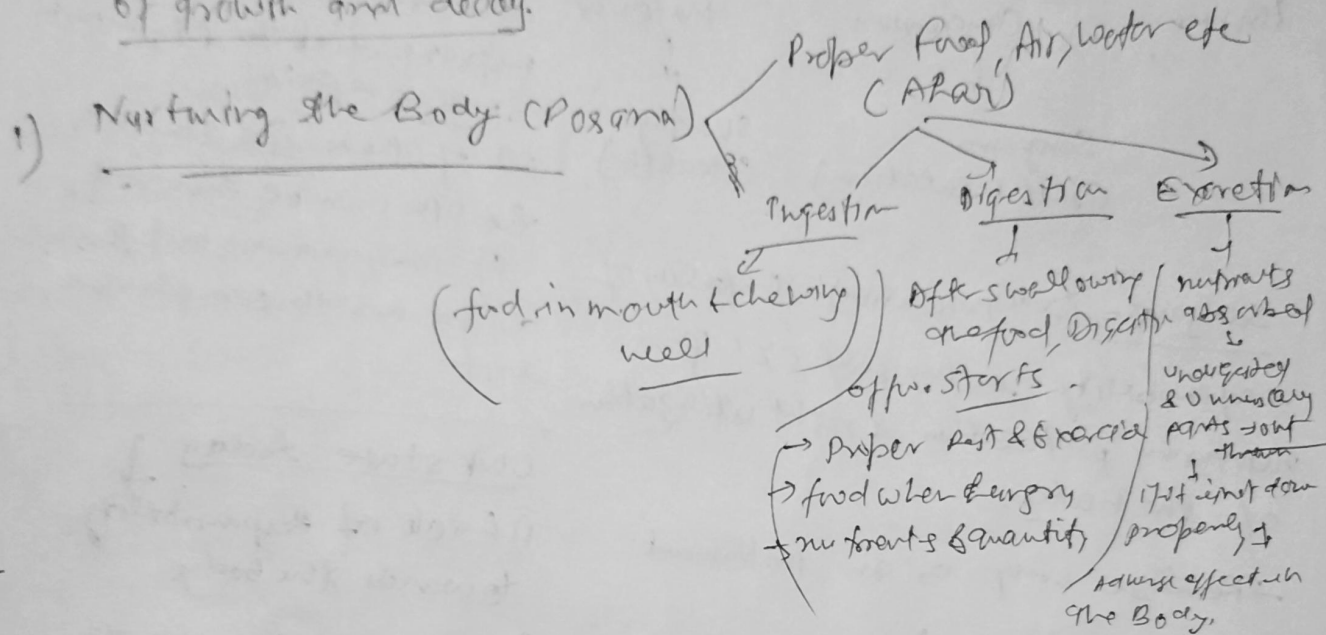 of growth and decay.
1) Nurturing the Body (Posana)
Proper food, Air, water etc
(Ahar)
Ingestion
(food in mouth & chewing
well)
Digestion
After swellowing
the food, Digestn
starts.
→ Proper Rest & Exercise
→ food when hungry
→ nutrients & quantity
Excretion
nutrients
absorbed
undigested
& Unnecessary
parts → out
thrown
If it is not done
properly →
Adverse effect in
the Body.